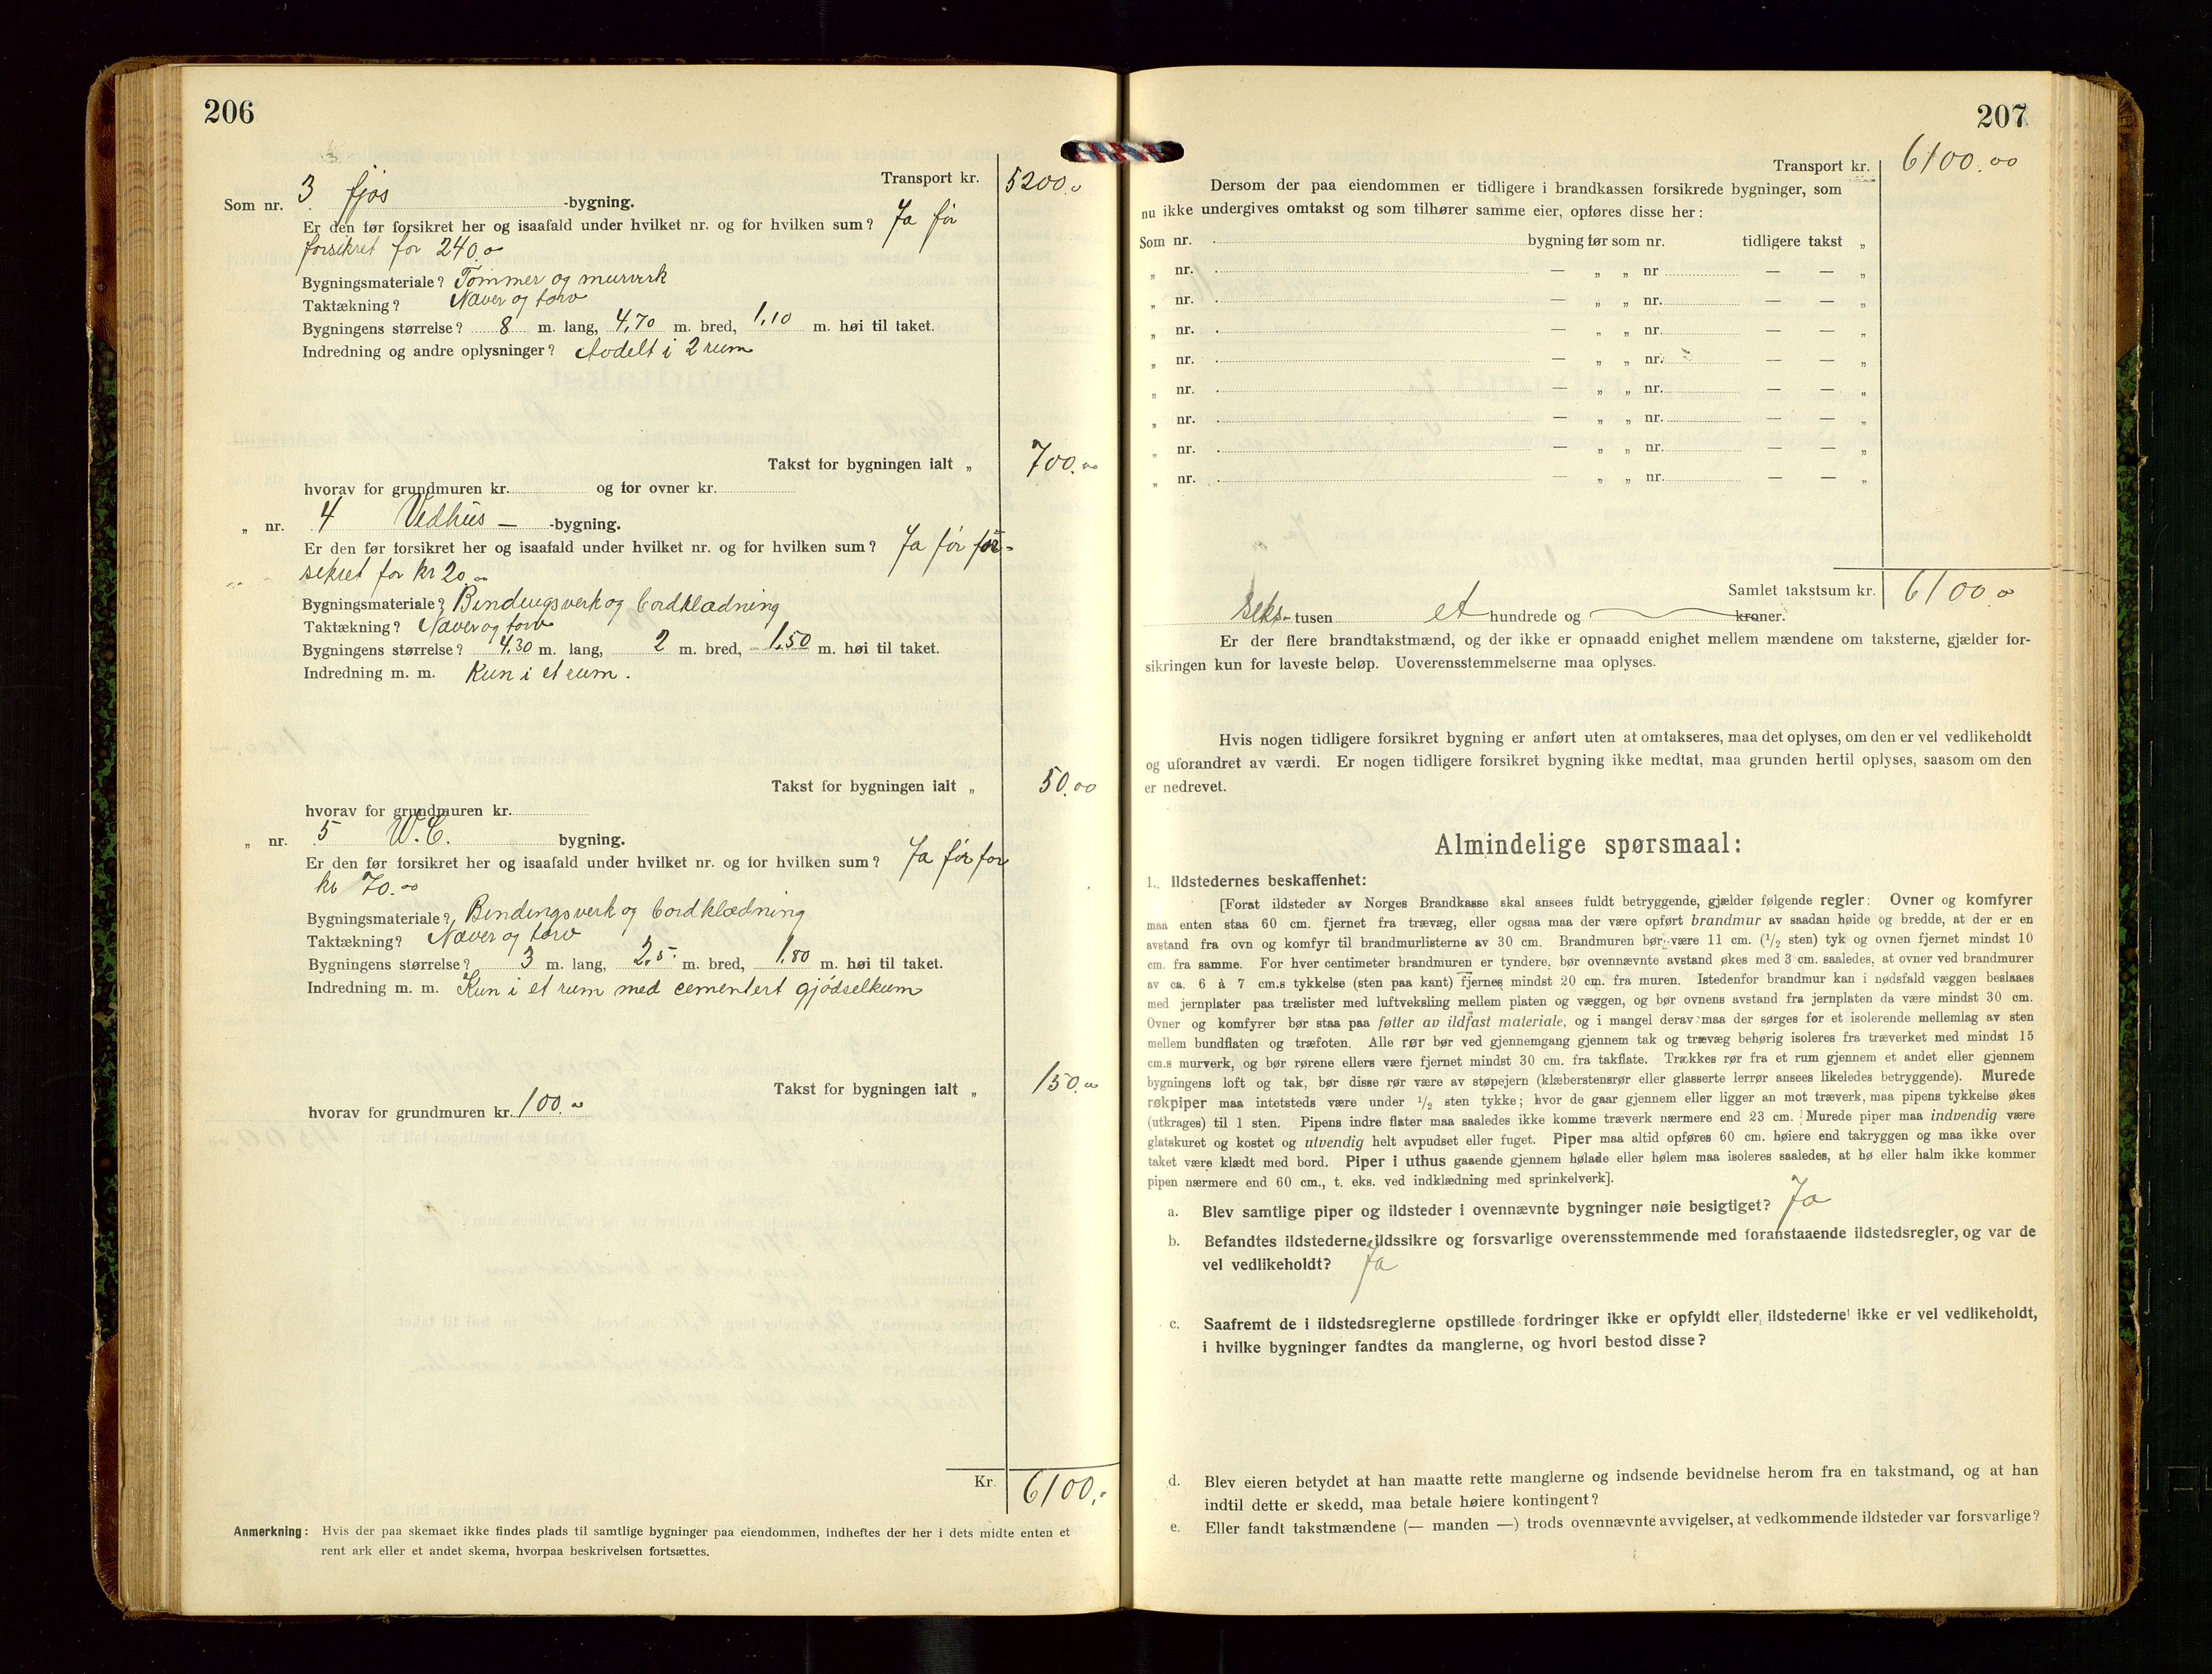 206
Transport kr. 5200.00
Som nr. 3 fjøs -bygning.
Er den før forsikret her og isaafald under hvilket nr. og for hvilken sum? Ja før
forsikret for 240.00
Bygningsmateriale? Tømmer og murverk
Taktækning? Næver og torv
Bygningens størrelse? 8 m. lang, 4,70 m. bred, 1,10 m. høi til taket.
Indredning og andre oplysninger? Avdelt i 2 rum
Takst for bygningen ialt „ 700.00
hvorav for grundmuren kr. og for ovner kr.
„ nr. 4 Vedhus — -bygning.
Er den før forsikret her og isaafald under hvilket nr. og for hvilken sum? Ja før for-
sikret for kr 20.00
Bygningsmateriale? Bindingsverk og bordklædning
Taktækning? Næver og torv
Bygningens størrelse? 4,30 m. lang, 2 m. bred, 1,50 m. høi til taket.
Indredning m. m. Kun i et rum.
Takst for bygningen ialt „ 50.00
hvorav for grundmuren kr.
„ nr. 5 W.C. bygning.
Er den før forsikret her og isaafald under hvilket nr. og for hvilken sum? Ja før for
kr 70.00
Bygningsmateriale? Bindingsverk og bordklædning
Taktækning? Næver og torv
Bygningens størrelse? 3 m. lang, 2,5 m. bred, 1,80 m. høi til taket.
Indredning m. m. Kun i et rum med cementert gjødselkum
Takst for bygningen ialt „ 150.00
hvorav for grundmuren kr. 100.00
Kr. 6100.00
Anmerkning: Hvis der paa skemaet ikke findes plads til samtlige bygninger paa eiendommen, indheftes der her i dets midte enten et
rent ark eller et andet skema, hvorpaa beskrivelsen fortsættes.
207
Transport kr. 6100.00
Dersom der paa eiendommen er tidligere i brandkassen forsikrede bygninger, som
nu ikke undergives omtakst og som tilhører samme eier, opføres disse her:
Som nr. bygning før som nr. tidligere takst „
„ nr. — „ „ nr. — — „
„ nr. — „ „ nr. — — „
„ nr. — „ „ nr. — — „
„ nr. — „ „ nr. — — „
„ nr. — „ „ nr. — — „
„ nr. — „ „ nr. — — „
„ nr. — „ „ nr. — — „
„ nr. — „ „ nr. — — „
Samlet takstsum kr. 6100.00
Seks- tusen et hundrede og — kroner.
Er der flere brandtakstmænd, og der ikke er opnaadd enighet mellem mændene om taksterne, gjælder for-
sikringen kun for laveste beløp. Uoverensstemmelserne maa oplyses.
Hvis nogen tidligere forsikret bygning er anført uten at omtakseres, maa det oplyses, om den er vel vedlikeholdt
og uforandret av værdi. Er nogen tidligere forsikret bygning ikke medtat, maa grunden hertil oplyses, saasom om den
er nedrevet.
Almindelige spørsmaal:
1. Ildstedernes beskaffenhet:
[Forat ildsteder av Norges Brandkasse skal ansees fuldt betryggende, gjælder følgende regler: Ovner og komfyrer
maa enten staa 60 cm. fjernet fra trævæg, eller ogsaa maa der være opført brandmur av saadan høide og bredde, at der er en
avstand fra ovn og komfyr til brandmurlisterne av 30 cm. Brandmuren bør være 11 cm. (1/2 sten) tyk og ovnen fjernet mindst 10
cm. fra samme. For hver centimeter brandmuren er tyndere, bør ovennævnte avstand økes med 3 cm. saaledes, at ovner ved brandmurer
av ca. 6 à 7 cm.s tykkelse (sten paa kant) fjernes mindst 20 cm. fra muren. Istedenfor brandmur kan i nødsfald væggen beslaaes
med jernplater paa trælister med luftveksling mellem platen og væggen, og bør ovnens avstand fra jernplaten da være mindst 30 cm.
Ovner og komfyrer bør staa paa føtter av ildfast materiale, og i mangel derav maa der sørges for et isolerende mellemlag av sten
mellem bundflaten og træfoten. Alle rør bør ved gjennemgang gjennem tak og trævæg behørig isoleres fra træverket med mindst 15
cm.s murverk, og bør rørene ellers være fjernet mindst 30 cm. fra takflate. Trækkes rør fra et rum gjennem et andet eller gjennem
bygningens loft og tak, bør disse rør være av støpejern (klæberstensrør eller glasserte lerrør ansees likeledes betryggende). Murede
røkpiper maa intetsteds være under 1/2 sten tykke; hvor de gaar gjennem eller ligger an mot træverk, maa pipens tykkelse økes
(utkrages) til 1 sten. Pipens indre flater maa saaledes ikke komme træverk nærmere end 23 cm. Murede piper maa indvendig være
glatskuret og kostet og utvendig helt avpudset eller fuget. Piper maa altid opføres 60 cm. høiere end takryggen og maa ikke over
taket være klædt med bord. Piper i uthus gaaende gjennem hølade eller hølem maa isoleres saaledes, at hø eller halm ikke kommer
pipen nærmere end 60 cm., t. eks. ved indklædning med sprinkelverk].
a. Blev samtlige piper og ildsteder i ovennævnte bygninger nøie besigtiget? Ja
b. Befandtes ildstederne ildssikre og forsvarlige overensstemmende med foranstaaende ildstedsregler, og var de
vel vedlikeholdt? Ja
c. Saafremt de i ildstedsreglerne opstillede fordringer ikke er opfyldt eller ildstederne ikke er vel vedlikeholdt,
i hvilke bygninger fandtes da manglerne, og hvori bestod disse?
d. Blev eieren betydet at han maatte rette manglerne og indsende bevidnelse herom fra en takstmand, og at han
indtil dette er skedd, maa betale høiere kontingent?
e. Eller fandt takstmændene (— manden —) trods ovennævnte avvigelser, at vedkommende ildsteder var forsvarlige?